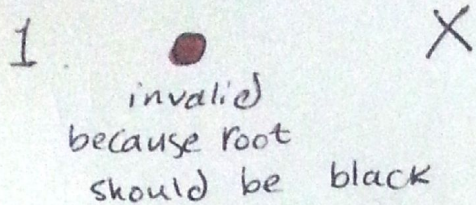 1. X
invalid
because root
should be black